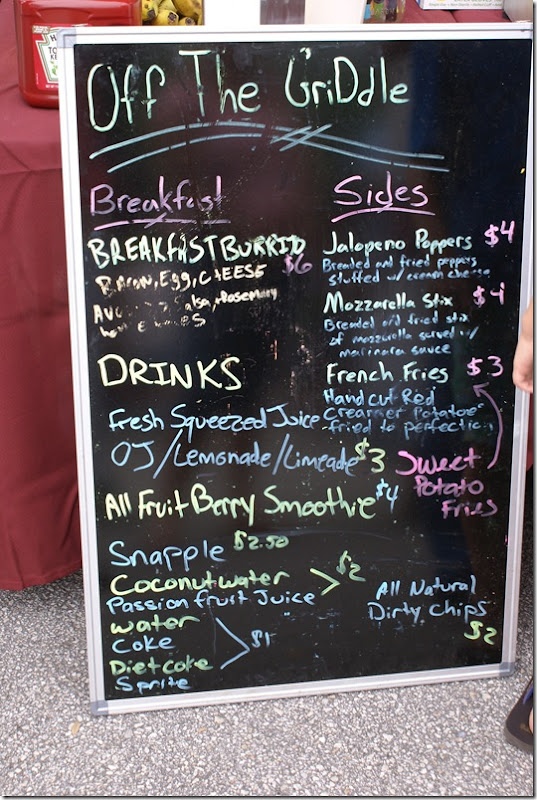 Off The GriDdle
Breakfast
BREAKFAST BURRITO
$6
BACON, EGG, CHEESE
Salsa, Rosemary
DRINKS
Fresh Squeezed Juice
OJ/Lemonade/Limeade $3
All Fruit Berry Smoothie $4
Snapple $2.50
Coconut water
Passion fruit Juice
$2
water
Coke
Diet coke
Sprite
$1
Sides
Jalapeno Poppers $4
Breaded and fried peppers
stuffed w/ cream cheese
Mozzarella Stix $4
Breaded and fried stix
of mozzarella served w/
marinara sauce
French Fries $3
Hand cut Red
Creamer Potatoes
fried to perfection
Sweet
Potato
Fries
All Natural
Dirty Chips
$2